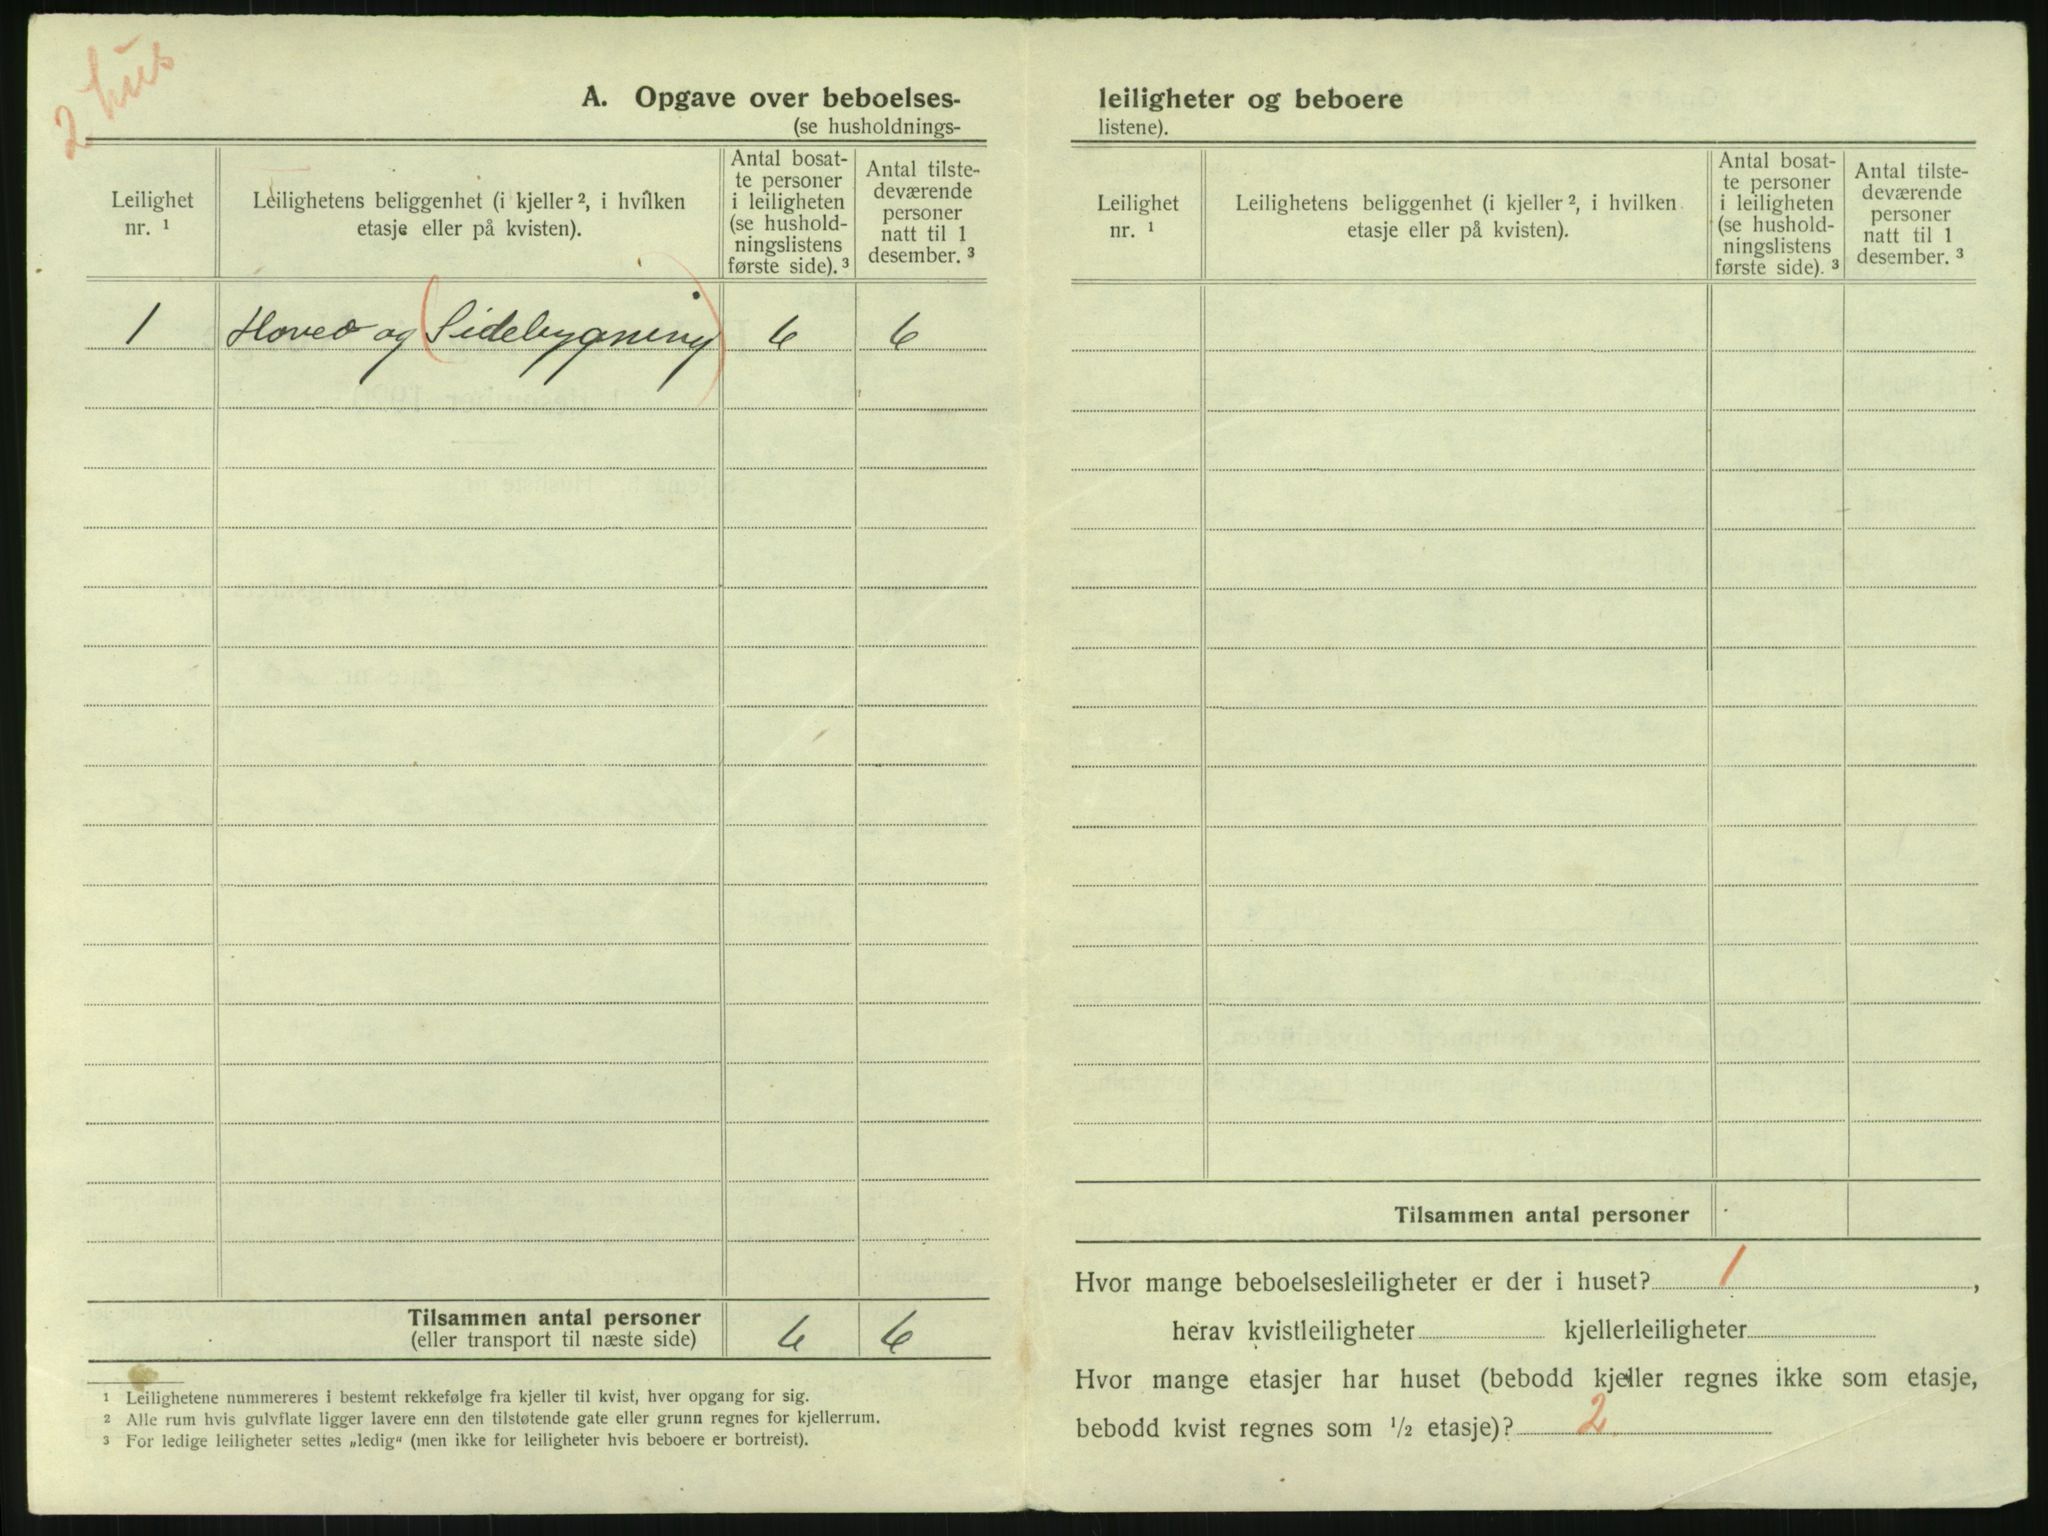 2 hus
A. Opgave over beboelses-
(se husholdnings-
Leilighet
nr. 1
Leilighetens beliggenhet (i kjeller 2, i hvilken
etasje eller på kvisten).
Antal bosat-
te personer
i leiligheten
(se hushold-
ningslistens
første side). 3
Antal tilste-
deværende
personer
natt til 1
desember. 3
1 Hoved og (Sidebygning) 6 6
Tilsammen antal personer 6 6
(eller transport til næste side)
1 Leilighetene nummereres i bestemt rekkefølge fra kjeller til kvist, hver opgang for sig.
2 Alle rum hvis gulvflate ligger lavere enn den tilstøtende gate eller grunn regnes for kjellerrum.
3 For ledige leiligheter settes „ledig“ (men ikke for leiligheter hvis beboere er bortreist).
leiligheter og beboere
listene).
Leilighet
nr. 1
Leilighetens beliggenhet (i kjeller 2, i hvilken
etasje eller på kvisten).
Antal bosat-
te personer
i leiligheten
(se hushold-
ningslistens
første side). 3
Antal tilste-
deværende
personer
natt til 1
desember. 3
Tilsammen antal personer
Hvor mange beboelsesleiligheter er der i huset? 1,
herav kvistleiligheter kjellerleiligheter
Hvor mange etasjer har huset (bebodd kjeller regnes ikke som etasje,
bebodd kvist regnes som 1/2 etasje)? 2